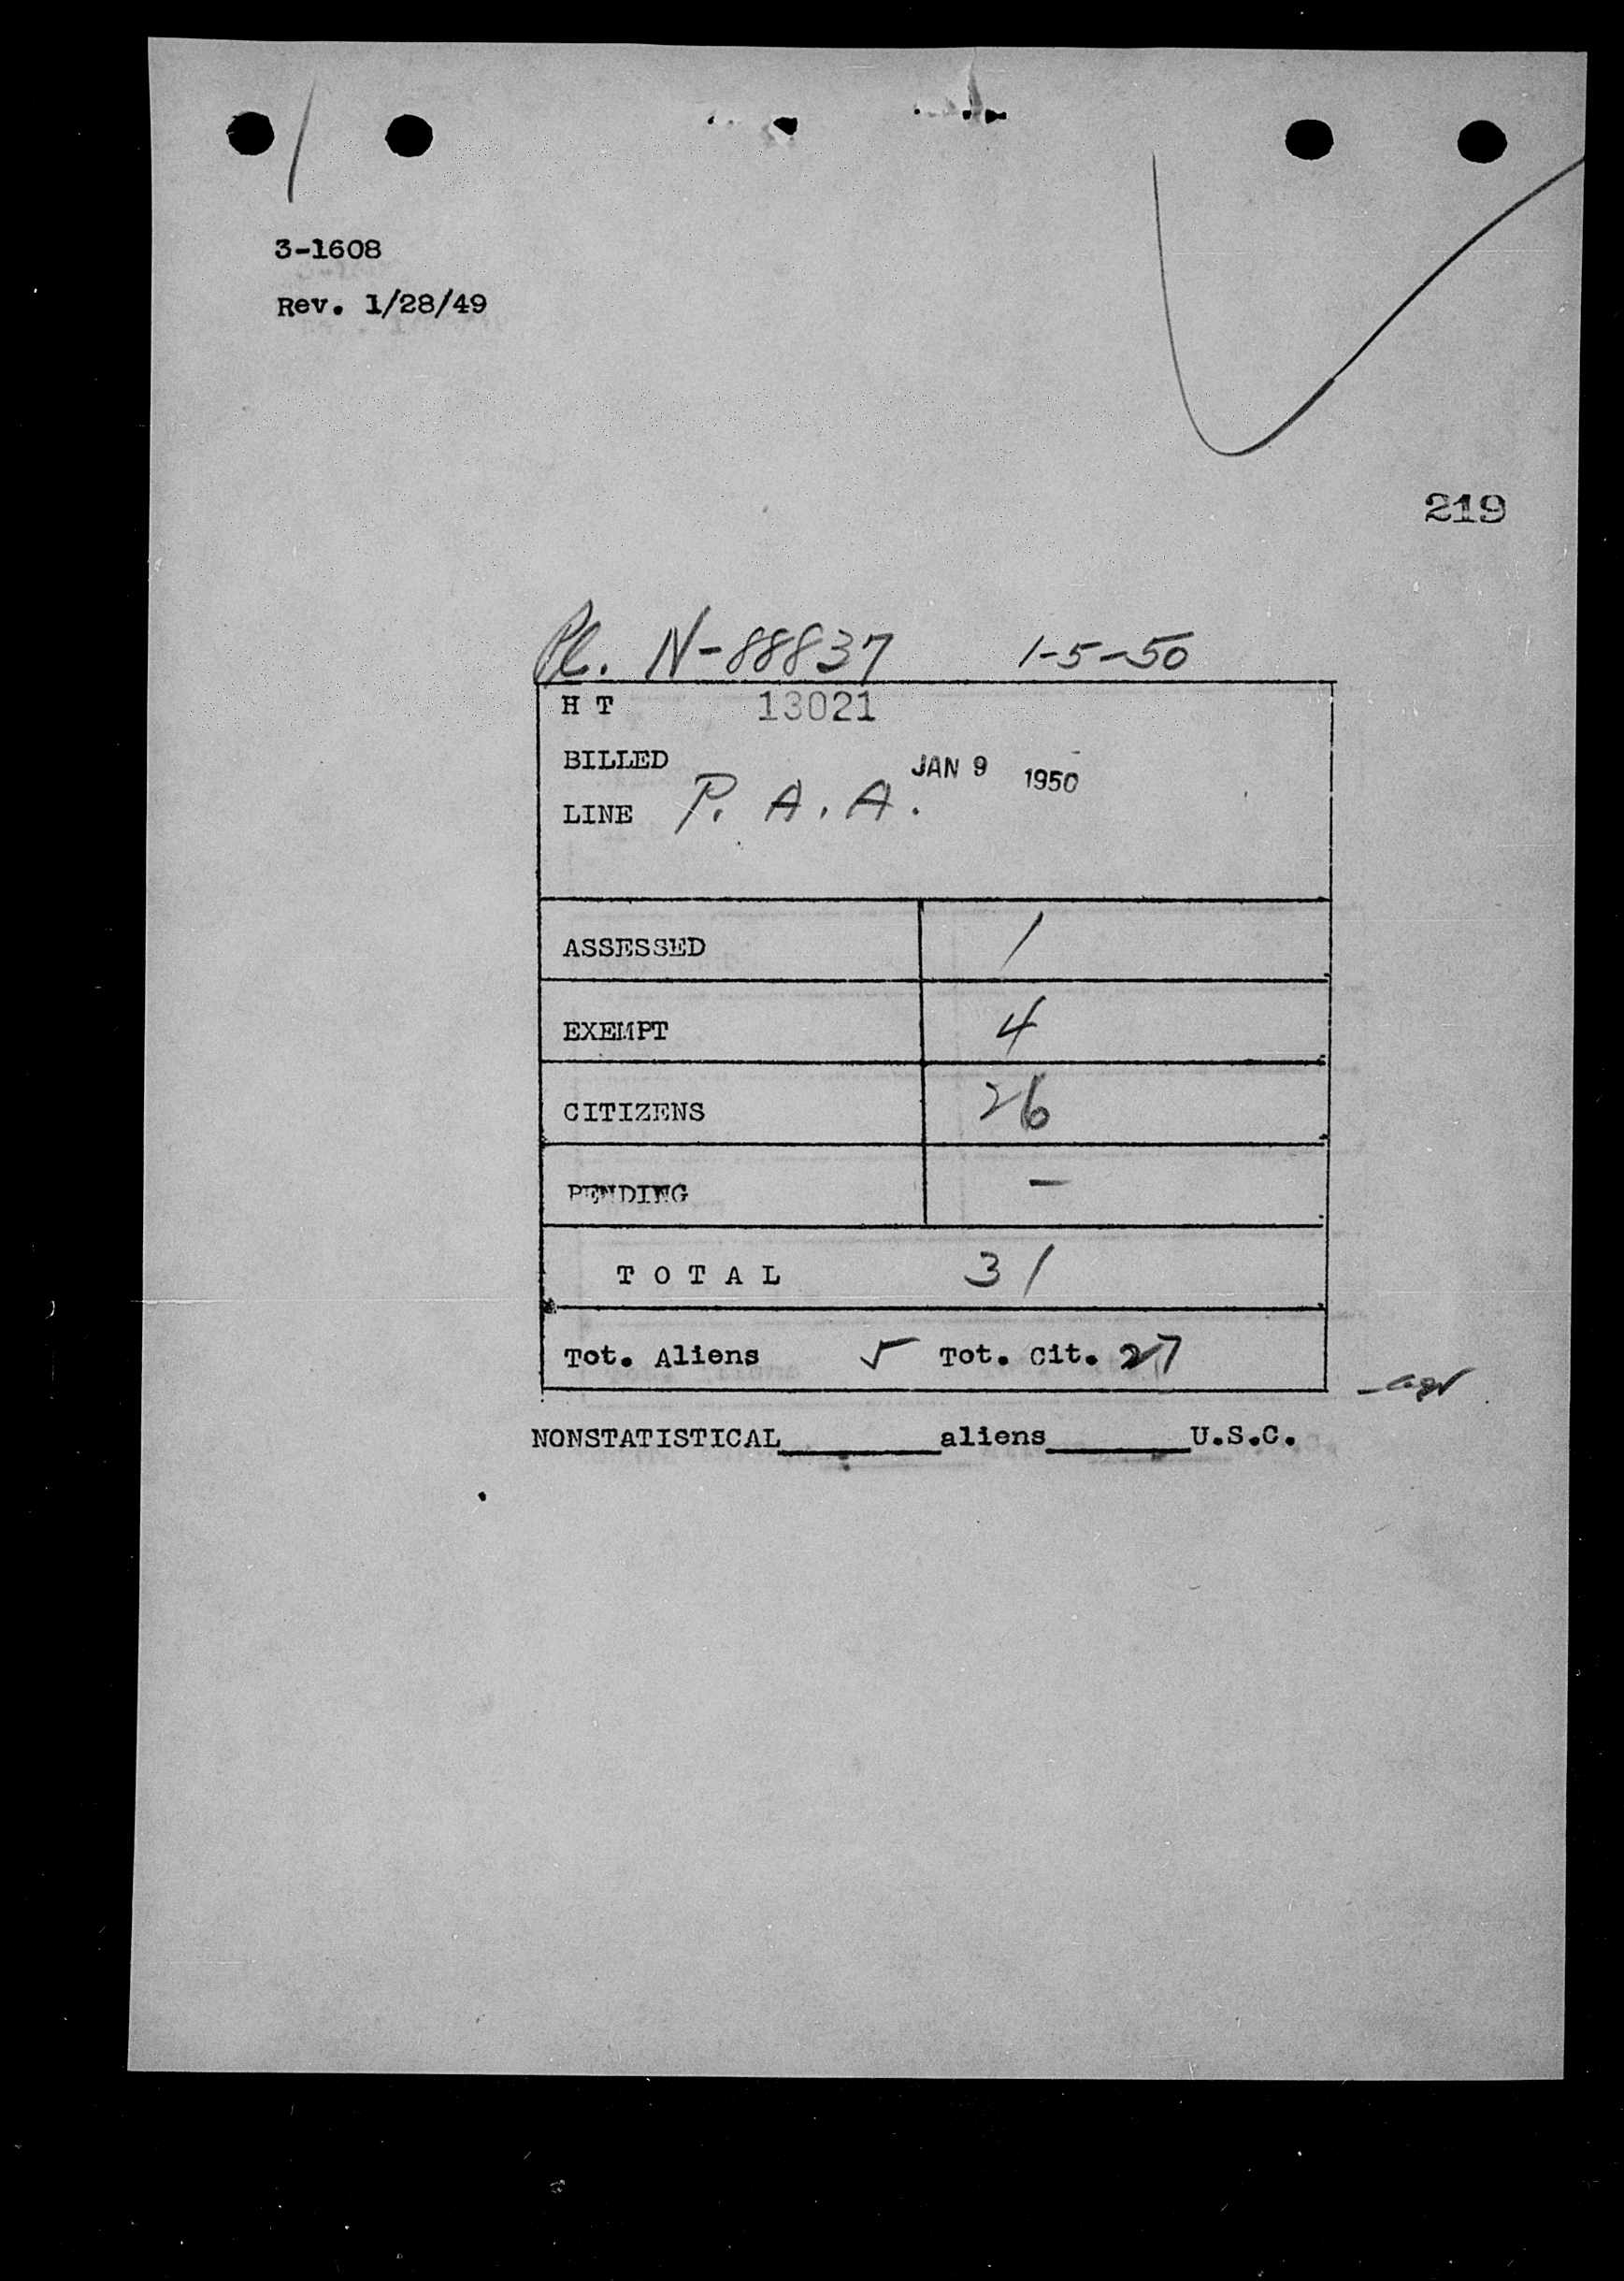 3-1608
Rev. 1/28/49
219
Pl. N-88837 1-5-50
H T 13021
BILLED JAN 9 1950
LINE P. A. A.
ASSESSED 1
EXEMPT 4
CITIZENS 26
PENDING -
T O T A L 31
Tot. Aliens 5 Tot. Cit. 27
NONSTATISTICAL________aliens________U.S.C.